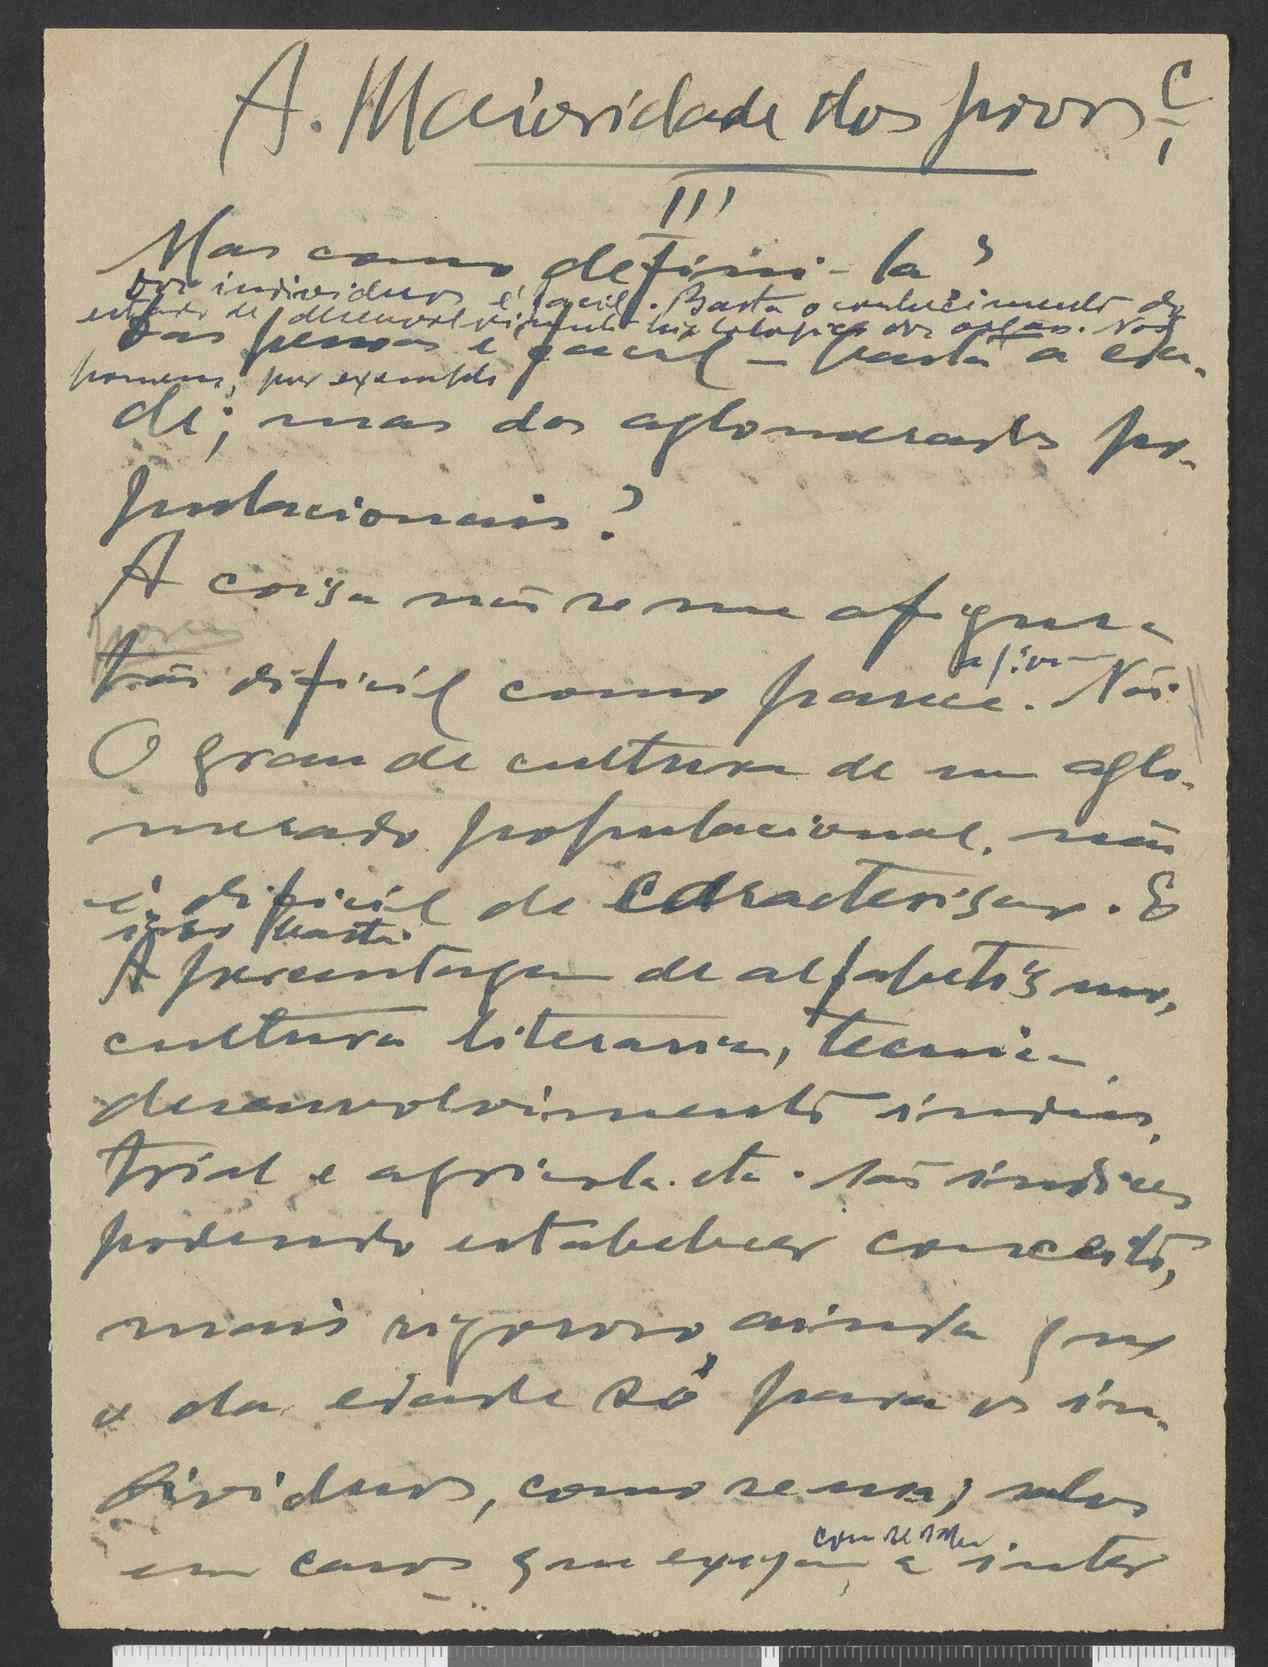 A. Maioridade dos povos
III
Mas como defini-la?
Dos individuos é facil. Basta o conhecimento do
estado de desenvolvimento histologico dos orgãos. Nos
Das pessoas é facil – basta a eda-
homens, por exemplo
de; mas dos aglomerados po-
pulacionais?
A coisa não se me afigura
tão dificil como parece. Não
O grau de cultura de um aglo-
merado populacional, não
é dificil de caracterisar. E
isso basta.
A percentagem de alfabetismo,
cultura literaria, tecnica,
desenvolvimento indus-
trial e agricola etc. são indices
podendo estabelecer conceito,
mais rigoroso, ainda que
o da edade só para os in-
dividuos, como se usa; salvo
em casos que exigem a inter